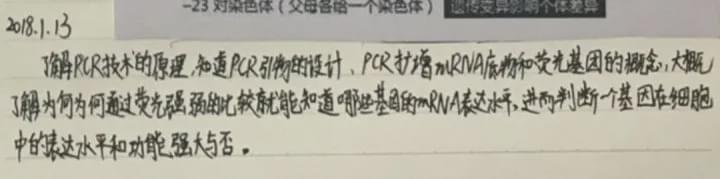 -23 对染色体（父母各给一个染色体）
遗传变异影响个体差异
2018.1.13
了解PCR技术的原理,知道PCR引物的设计、PCR扩增mRNA底物和荧光基因的概念,大概
了解为何为何通过荧光强弱的比较就能知道哪些基因的mRNA表达水平,进而判断一个基因在细胞
中的表达水平和功能强大与否。